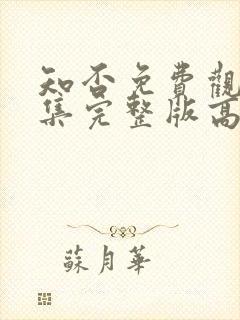 知否免費觀
集完整版高
蘇月華